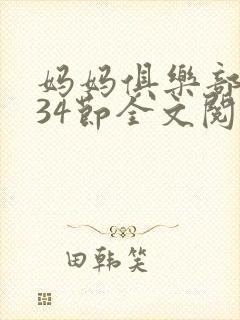 妈妈俱樂部
34節全文閱
田韩笑